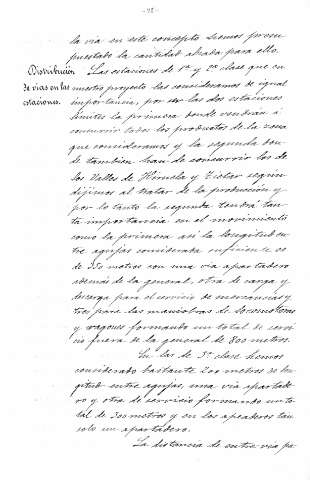 -98-
la via en este concepto hemos presu-
puestado la cantidad alzada para ello.
Distribución de vias en las estaciones.
Las estaciones de 1ª y 2ª clase que en
nuestro proyecto las consideramos de igual
importancia, por ser las dos estaciones
limites la primera donde vendrán á
concurrir todos los productos de la zona
que consideramos y la segunda don-
de tambien han de concurrir los de
los Valles de y según
dijimos al tratar de la producción y
por lo tanto la segunda tendrá tan-
ta importancia en el movimiento
como la primera asi la longitud en-
tre agujas considerada suficiente es
de 350 metros con una via apartadero
además de la general, otra de carga y
descarga para el servicio de mercancias y
tres para las maniobras de locomotoras
y wagones formando un total de servi-
cio fuera de la general de 800 metros.
En las de 3ª clase hemos
considerado bastante 200 metros de lon-
gitud entre agujas, una via apartade-
ro y otra de servicio formando un to-
tal de 300 metros y en los apeaderos tan
solo un apartadero.
La distancia de entre via pa-